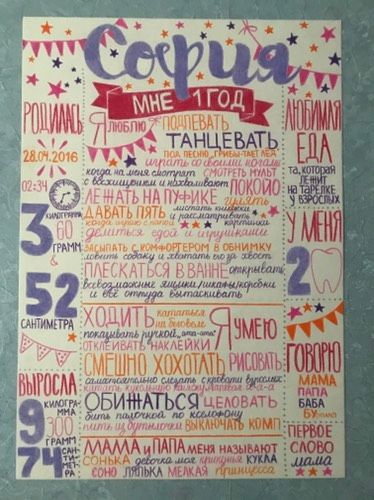 София
МНЕ 1 ГОД
РОДИЛАСЬ
28.04.2016
02:34
3 КИЛОГРАММА
360
ГРАММ
&
52
САНТИМЕТРА
ВЫРОСЛА
9 КИЛОГРАММА
300
ГРАММ
74 САНТИМЕТРА
Я ЛЮБЛЮ ПОДПЕВАТЬ
ТАНЦЕВАТЬ
ПОД ПЕСНЮ „ГРИБЫ-ТАЕТ ЛЕД"
играть со своими ногами
когда на меня смотрят СМОТРЕТЬ МУЛЬТ
с восхищением и нахваливают ПОКОЙО
ЛЕЖАТЬ НА ПУФИКЕ гулять
ДАВАТЬ ПЯТЬ листать книжки
и рассматривать картинки
делиться едой и игрушками
ЗАСЫПАТЬ С КОМФОРТЕРОМ В ОБНИМКУ
ловить собаку и хватать его за хвост
ПЛЕСКАТЬСЯ В ВАННЕ открывать
всевозможные ящики/шкафы/коробки
и всё оттуда вытаскивать
ХОДИТЬ кататься на беговеле
Я УМЕЮ
показывать ручкой „ота-ота"
ОТКЛЕИВАТЬ НАКЛЕЙКИ
СМЕШНО ХОХОТАТЬ РИСОВАТЬ
самостоятельно слезать с кровати
ОБИЖАТЬСЯ ЦЕЛОВАТЬ
бить палочкой по ксилофону
пить из бутылочки ВЫКЛЮЧАТЬ КОМП
МАМА и ПАПА МЕНЯ НАЗЫВАЮТ
СОНЬКА девочка моя КУКЛА
СОНЮ ЛЯЛЬКА МЕЛКАЯ принцесса
ЛЮБИМАЯ
ЕДА
та, которая
ЛЕЖИТ
НА ТАРЕЛКЕ
У ВЗРОСЛЫХ
У МЕНЯ
2
ГОВОРЮ
МАМА
ПАПА
БАБА
БУ
ПЕРВОЕ
СЛОВО
мама